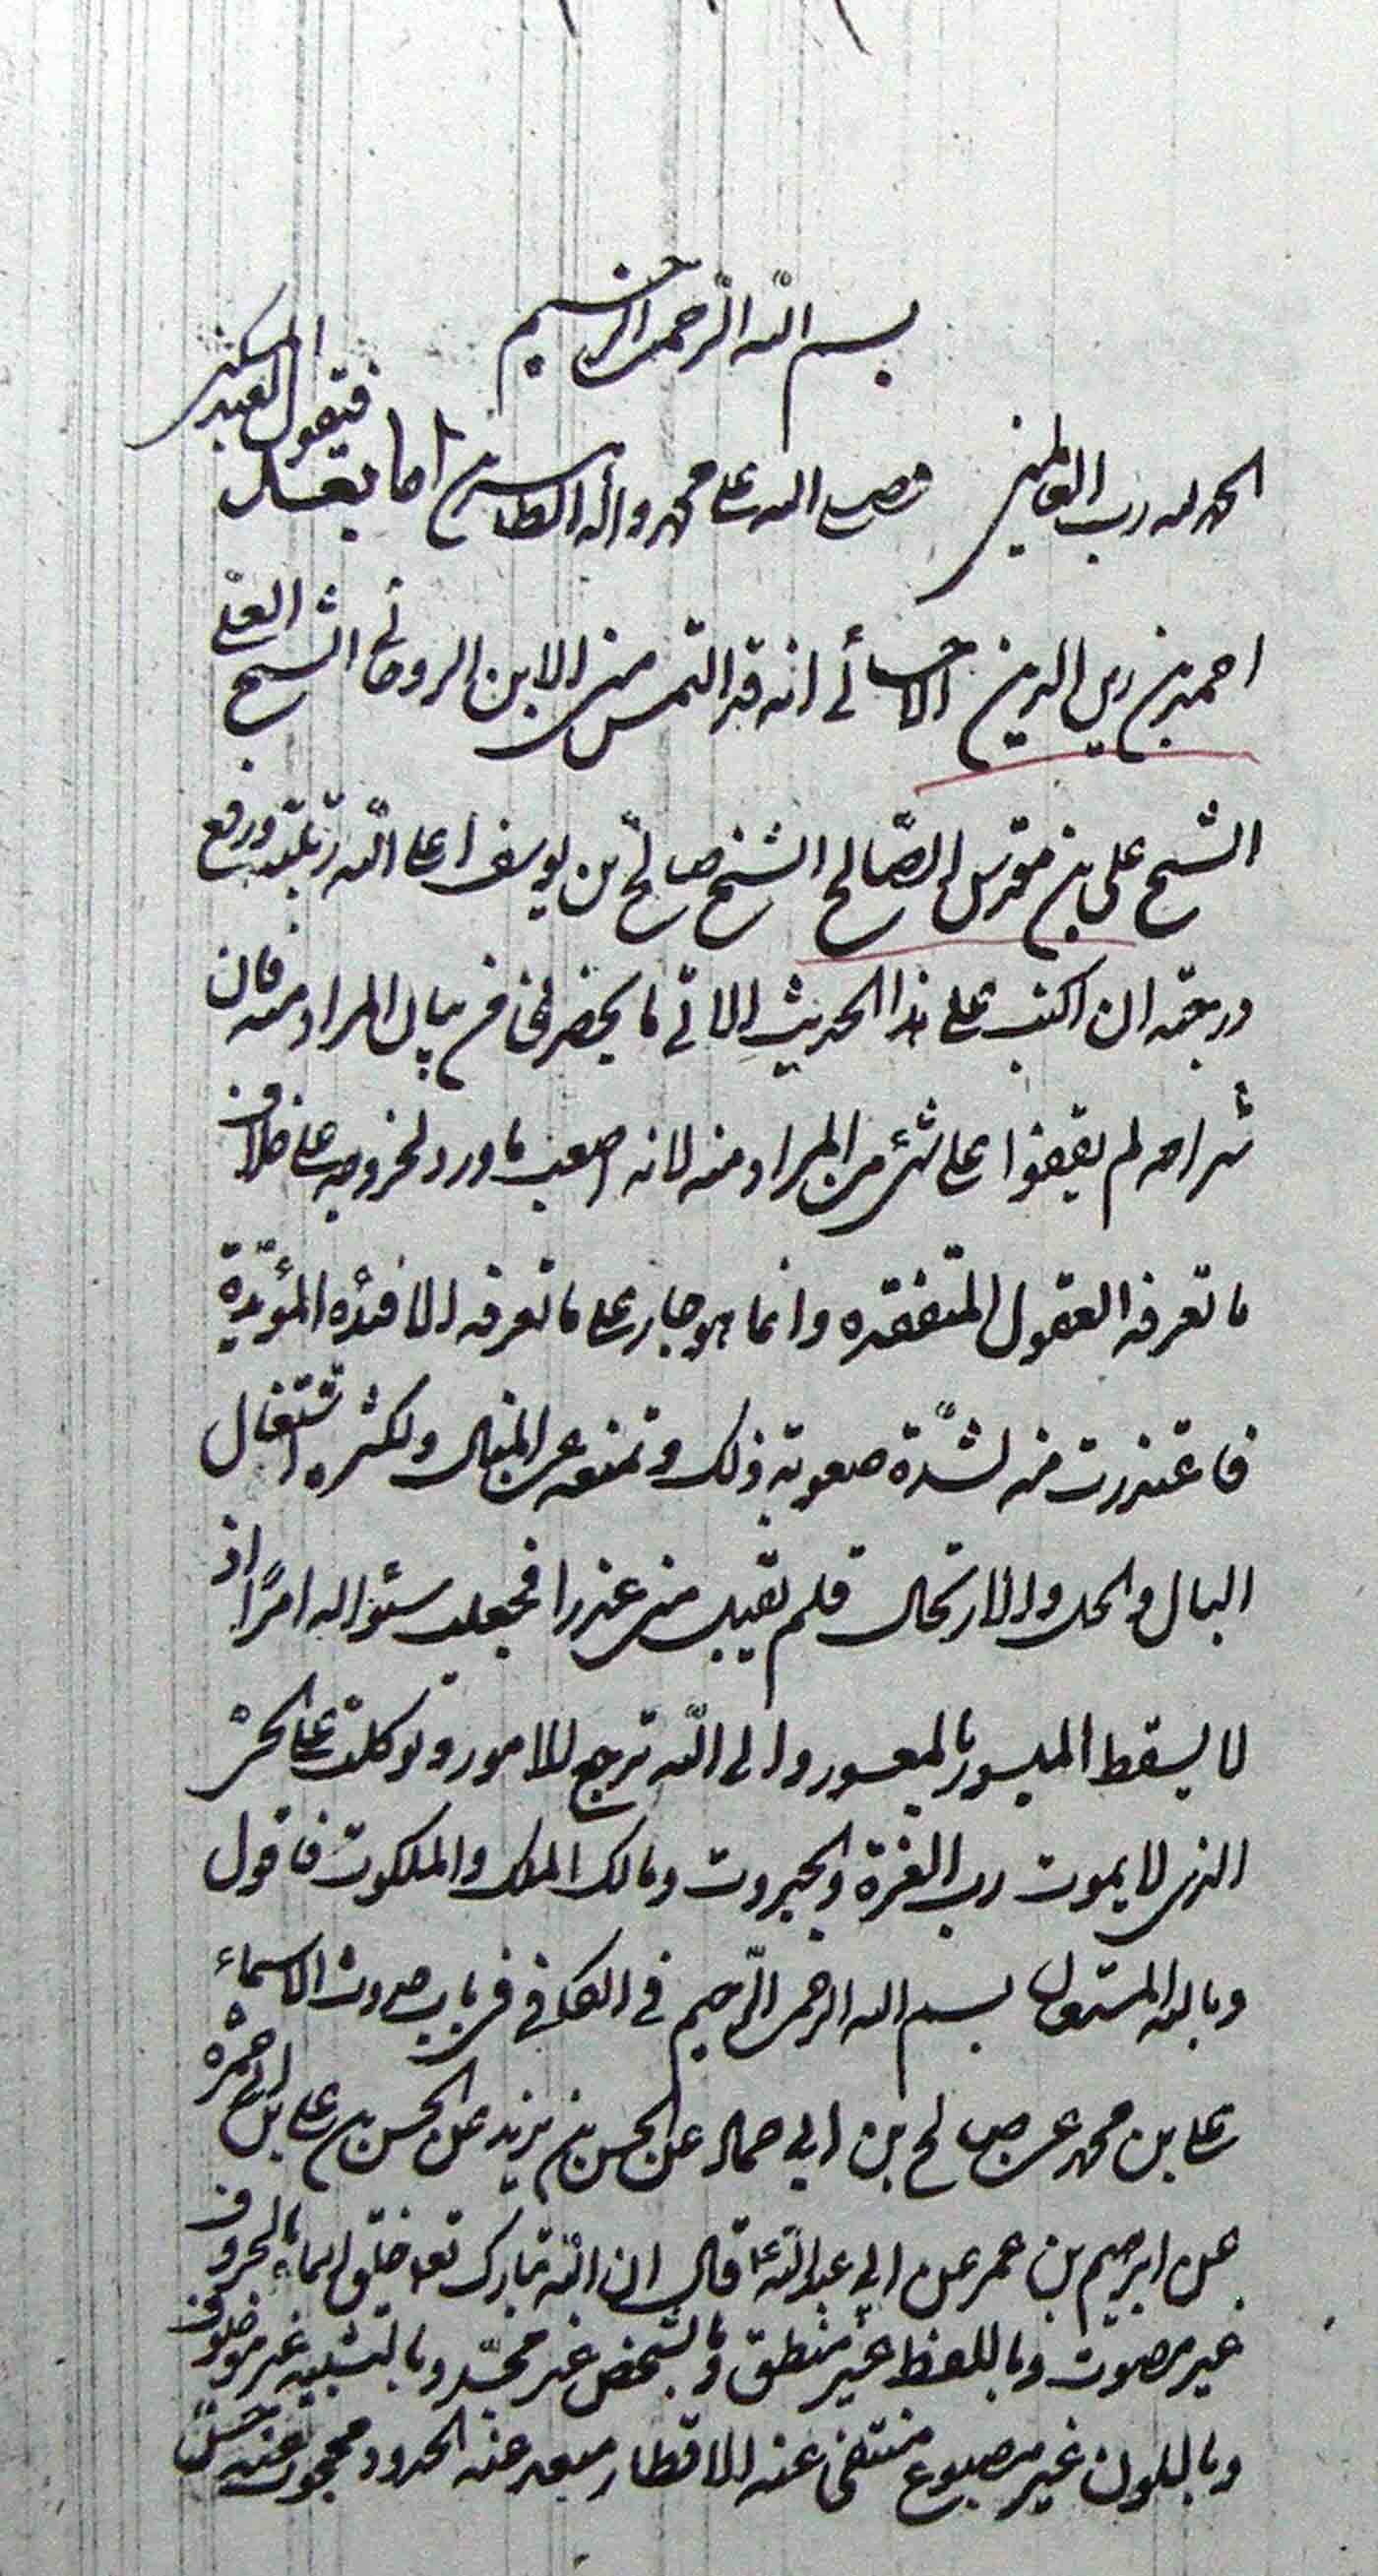 بسم الله الرّحمن الرّحيم
الحمد لله رب العالمين وصلى الله على محمد وآله الطاهرين اما بعد فيقول العبد المسكين
احمد بن زين الدين الاحسائي انه قد التمس مني الابن الروحاني الشيخ العلي
الشيخ علي بن مقدس الصّالح الشيخ صالح بن يوسف اعلى الله رتبته ورفع
درجته ان اكتب على هذا الحديث الاتي ما يحضرني من بيان المراد منه فان
شراحه لم يقفوا على شئ من المراد منه لانه اصعب ما ورد لخروجه على خلاف
ما تعرفه العقول المتفقده وانما هو جار على ما تعرفه الافئده المؤيّدة
فاعتذرت منه لشدّة صعوبة ذلك وتمنعه عن المنال ولكثره اشتغال
البال والحل والارتحال فلم يقبل مني عذرا فجعلت سئواله امرًا اذ
لا يسقط الميسور بالمعسور والى الله ترجع الامور وتوكلت على الحى
الذى لا يموت رب العزة والجبروت ومالك الملك والملكوت فاقول
وبالله المستعان بسم الله الرحمن الرّحيم في الكافي في باب حدوث الاسماء
على بن محمد عن صالح بن ابي حماد عن الحسين بن يزيد عن الحسن بن على بن ابي حمزه
عن ابرهيم بن عمر عن ابي عبد الله ع قال ان الله تبارك تعا خلق اسما بالحروف
غير مصوت وباللفظ غير منطق وبالشخص غير مجسّد وبالتشبيه غير موصوف
وباللون غير مصبوغ منتفى عنه الاقطار مبعد عنه الحدود محجوب عنه حسّ